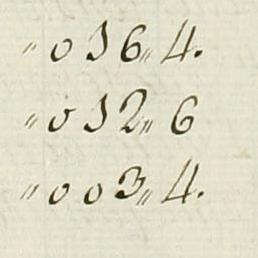 〃 0 1 6 〃 4.
〃 0 1 2 〃 6
〃 0 0 3 〃 4.